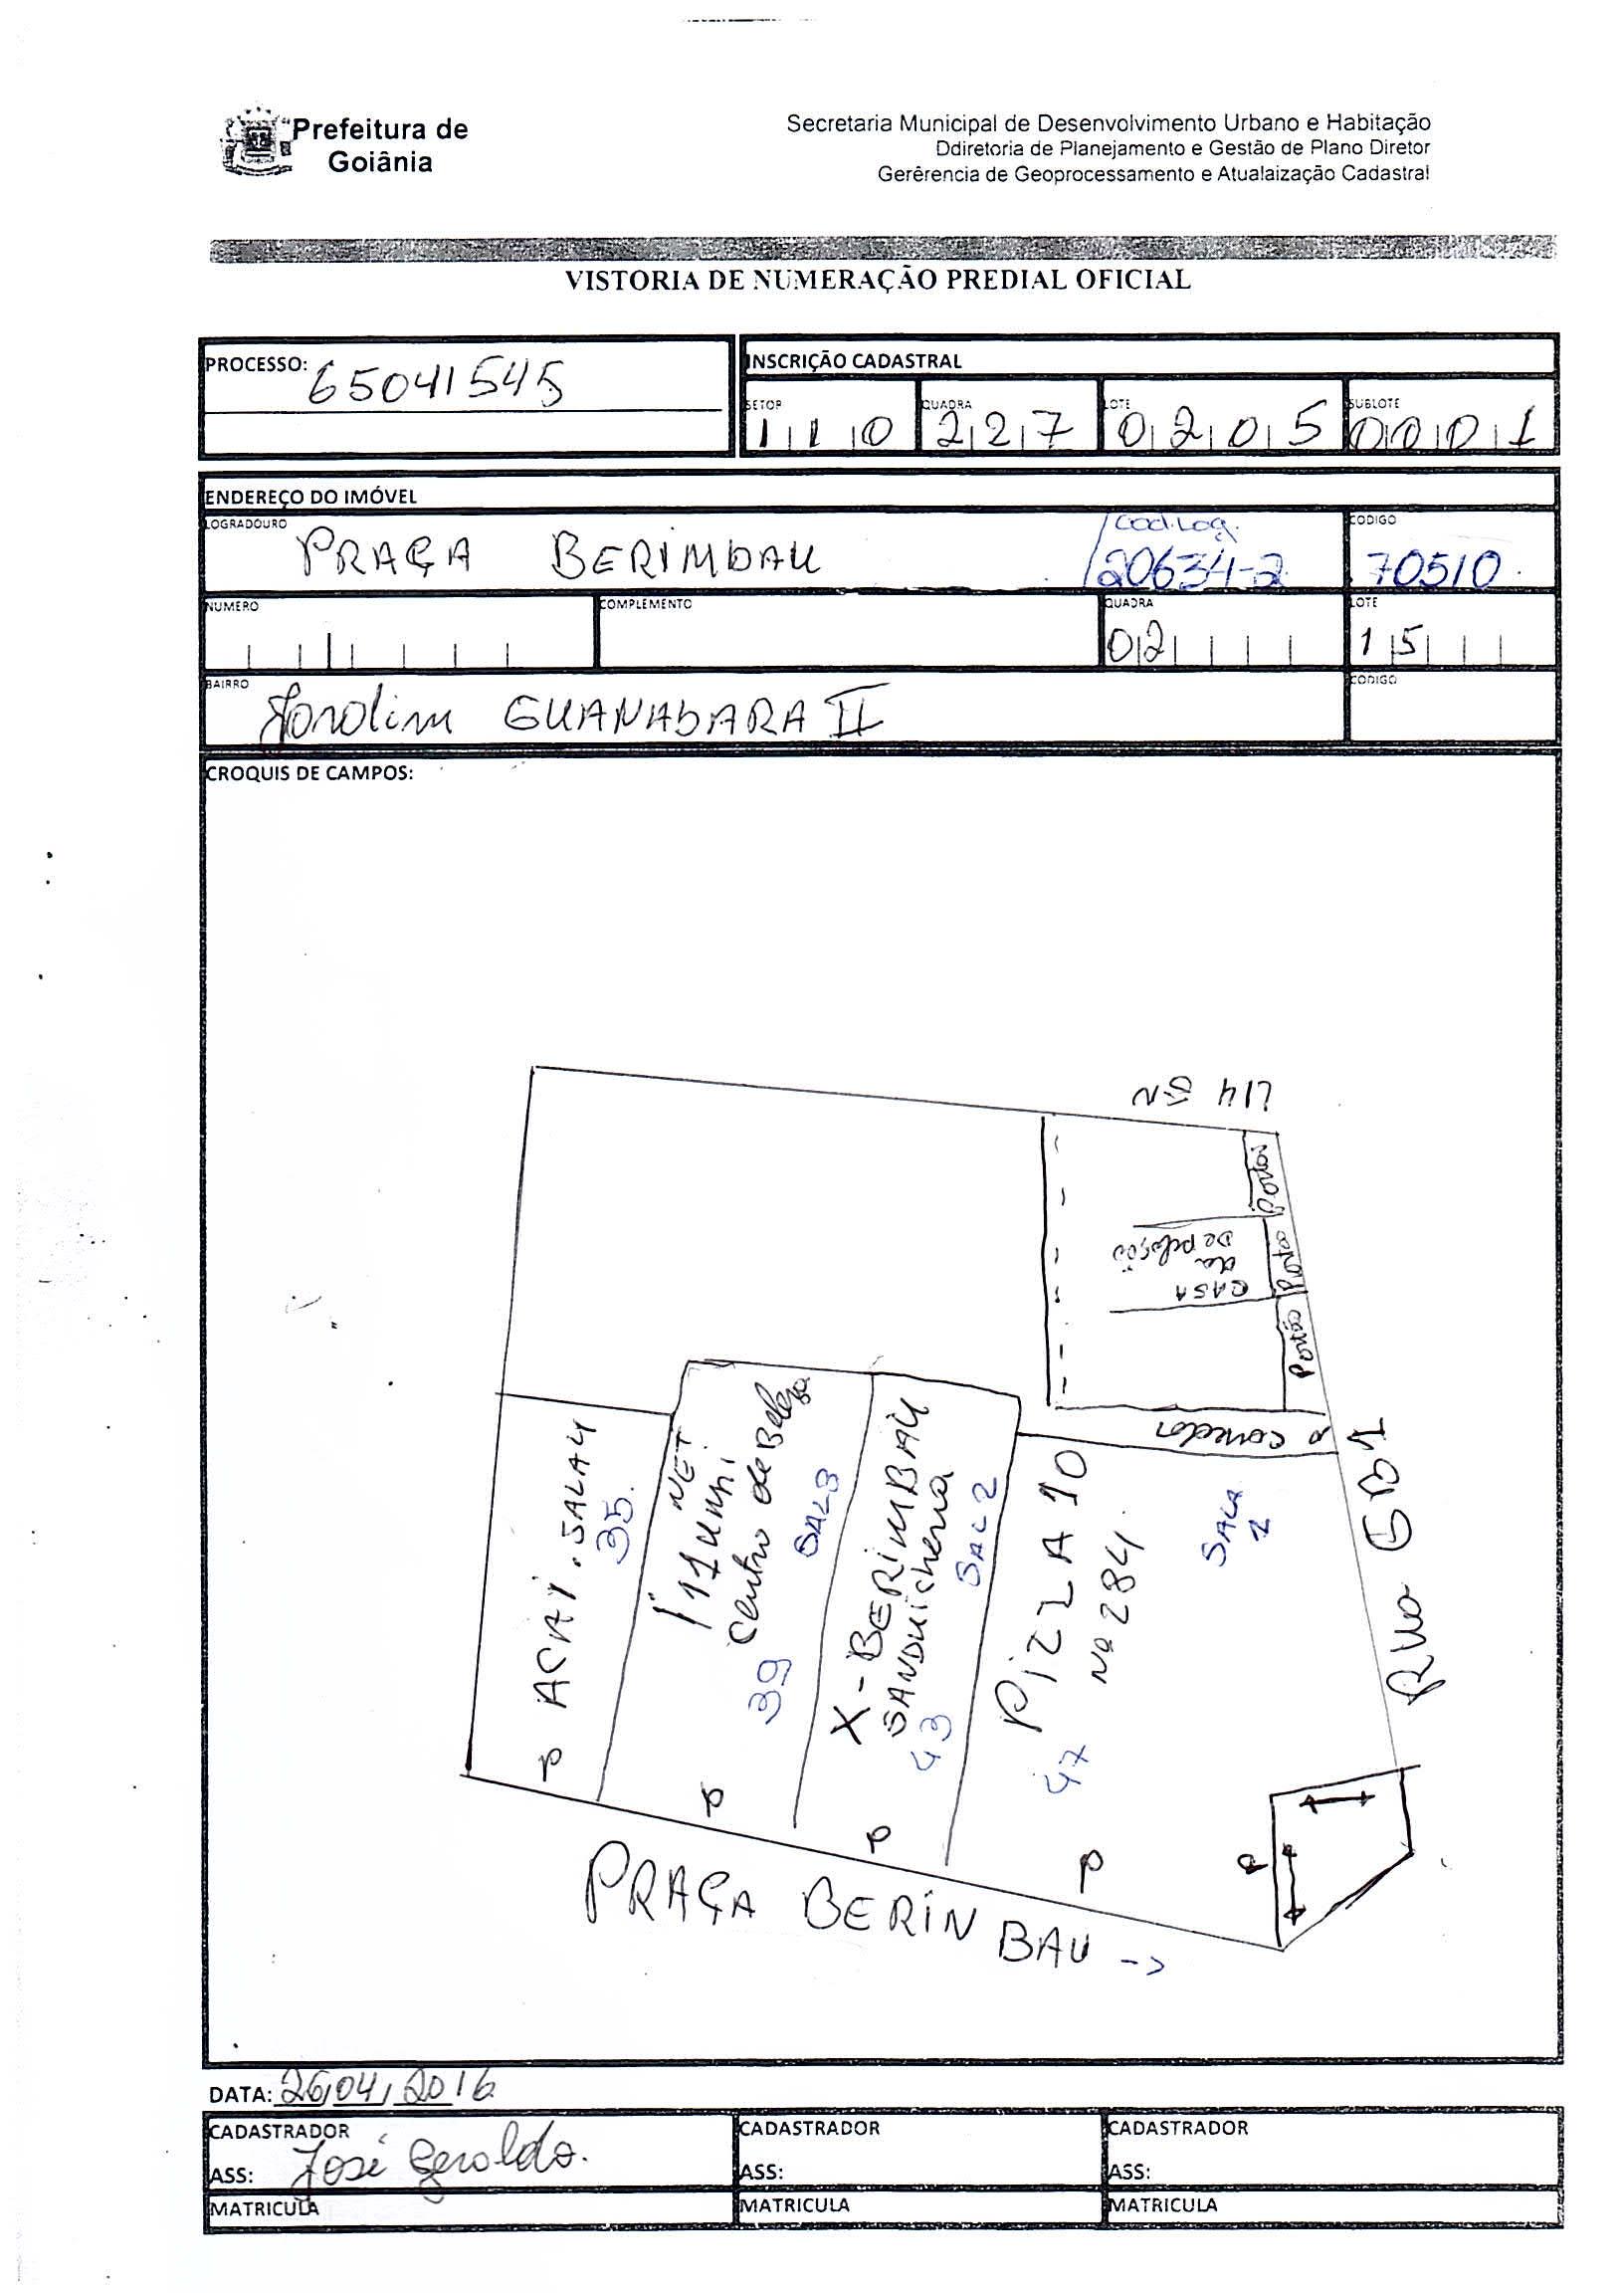 Prefeitura de
Goiânia
Secretaria Municipal de Desenvolvimento Urbano e Habitação
Ddiretoria de Planejamento e Gestão de Plano Diretor
Gerêrencia de Geoprocessamento e Atualaização Cadastral
VISTORIA DE NUMERAÇÃO PREDIAL OFICIAL
PROCESSO: 65041545
INSCRIÇÃO CADASTRAL
SETOR QUADRA LOTE SUBLOTE
110 227 0205 0001
ENDEREÇO DO IMÓVEL
LOGRADOURO Cod.Log. CODIGO
PRAÇA BERIMBAU 20634-2 70510
NUMERO COMPLEMENTO QUADRA LOTE
02 15
BAIRRO CODIGO
Jardim GUANABARA II
CROQUIS DE CAMPOS:
Portão
CASA
da
Portão
Portão
corredor
AÇAÍ. SALA 4
35.
NET
centro de Beleza
SAL 3
39
X-BERIMBAU
SANDUICHERIA
SAL 2
43
PIZZA 10
Nº 284.
SALA
1
47
RUA GB1
PRAÇA BERIN BAU ->
DATA: 26/04/2016
CADASTRADOR CADASTRADOR CADASTRADOR
ASS: José Geraldo. ASS: ASS:
MATRICULA MATRICULA MATRICULA